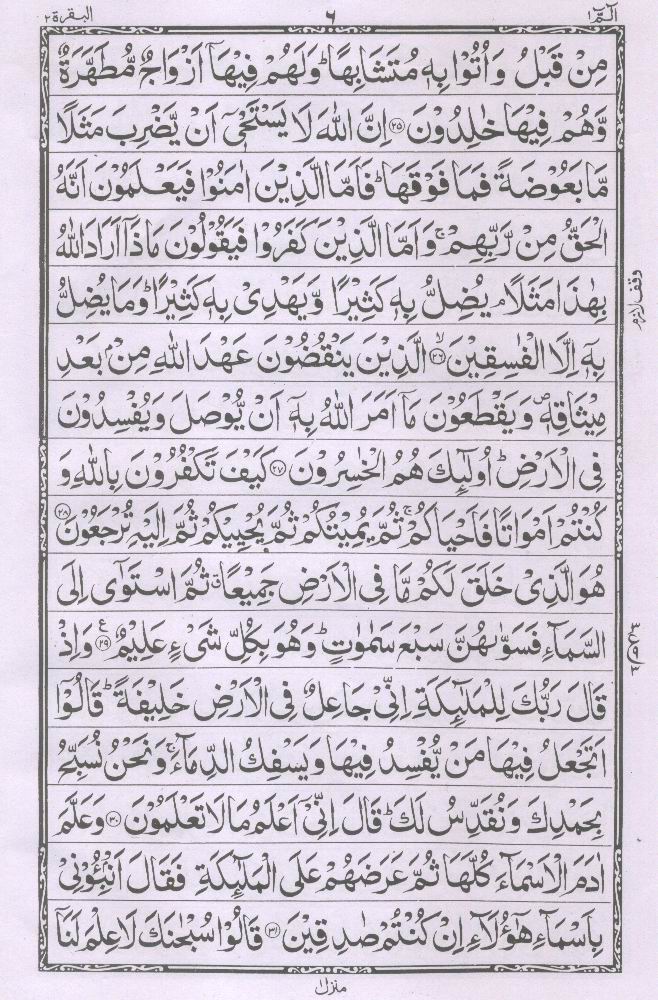 الٓمّٓ ١
٦
البقرة ٢
مِنْ قَبْلُ وَاُتُوْا بِهٖ مُتَشَابِهًا ؕ وَلَهُمْ فِيْهَاۤ اَزْوَاجٌ مُّطَهَّرَةٌ
وَّهُمْ فِيْهَا خٰلِدُوْنَ ۝۲۵ اِنَّ اللّٰهَ لَا يَسْتَحْيٖۤ اَنْ يَّضْرِبَ مَثَلًا
مَّا بَعُوْضَةً فَمَا فَوْقَهَا ؕ فَاَمَّا الَّذِيْنَ اٰمَنُوْا فَيَعْلَمُوْنَ اَنَّهُ
الْحَقُّ مِنْ رَّبِّهِمْ ۚ وَاَمَّا الَّذِيْنَ كَفَرُوْا فَيَقُوْلُوْنَ مَاذَاۤ اَرَادَ اللّٰهُ
بِهٰذَا مَثَلًا ۘ يُضِلُّ بِهٖ كَثِيْرًا وَّيَهْدِىْ بِهٖ كَثِيْرًا ؕ وَمَا يُضِلُّ
وقف لازم
بِهٖۤ اِلَّا الْفٰسِقِيْنَ ۝۲۶ۙ الَّذِيْنَ يَنْقُضُوْنَ عَهْدَ اللّٰهِ مِنْۢ بَعْدِ
مِيْثَاقِهٖ ۪ وَيَقْطَعُوْنَ مَاۤ اَمَرَ اللّٰهُ بِهٖۤ اَنْ يُّوْصَلَ وَيُفْسِدُوْنَ
فِى الْاَرْضِ ؕ اُولٰٓئِكَ هُمُ الْخٰسِرُوْنَ ۝۲۷ كَيْفَ تَكْفُرُوْنَ بِاللّٰهِ وَ
كُنْتُمْ اَمْوَاتًا فَاَحْيَاكُمْ ۚ ثُمَّ يُمِيْتُكُمْ ثُمَّ يُحْيِيْكُمْ ثُمَّ اِلَيْهِ تُرْجَعُوْنَ ۝۲۸
هُوَ الَّذِىْ خَلَقَ لَكُمْ مَّا فِى الْاَرْضِ جَمِيْعًا ۗ ثُمَّ اسْتَوٰۤى اِلَى
السَّمَآءِ فَسَوّٰىهُنَّ سَبْعَ سَمٰوٰتٍ ؕ وَهُوَ بِكُلِّ شَىْءٍ عَلِيْمٌ ۝۲۹ وَاِذْ
قَالَ رَبُّكَ لِلْمَلٰٓئِكَةِ اِنِّىْ جَاعِلٌ فِى الْاَرْضِ خَلِيْفَةً ؕ قَالُوْۤا
اَتَجْعَلُ فِيْهَا مَنْ يُّفْسِدُ فِيْهَا وَيَسْفِكُ الدِّمَآءَ ۚ وَنَحْنُ نُسَبِّحُ
بِحَمْدِكَ وَنُقَدِّسُ لَكَ ؕ قَالَ اِنِّىْۤ اَعْلَمُ مَا لَا تَعْلَمُوْنَ ۝۳۰ وَعَلَّمَ
اٰدَمَ الْاَسْمَآءَ كُلَّهَا ثُمَّ عَرَضَهُمْ عَلَى الْمَلٰٓئِكَةِ فَقَالَ اَنْۢبِئُوْنِىْ
بِاَسْمَآءِ هٰۤؤُلَآءِ اِنْ كُنْتُمْ صٰدِقِيْنَ ۝۳۱ قَالُوْا سُبْحٰنَكَ لَا عِلْمَ لَنَاۤ
منزل ١